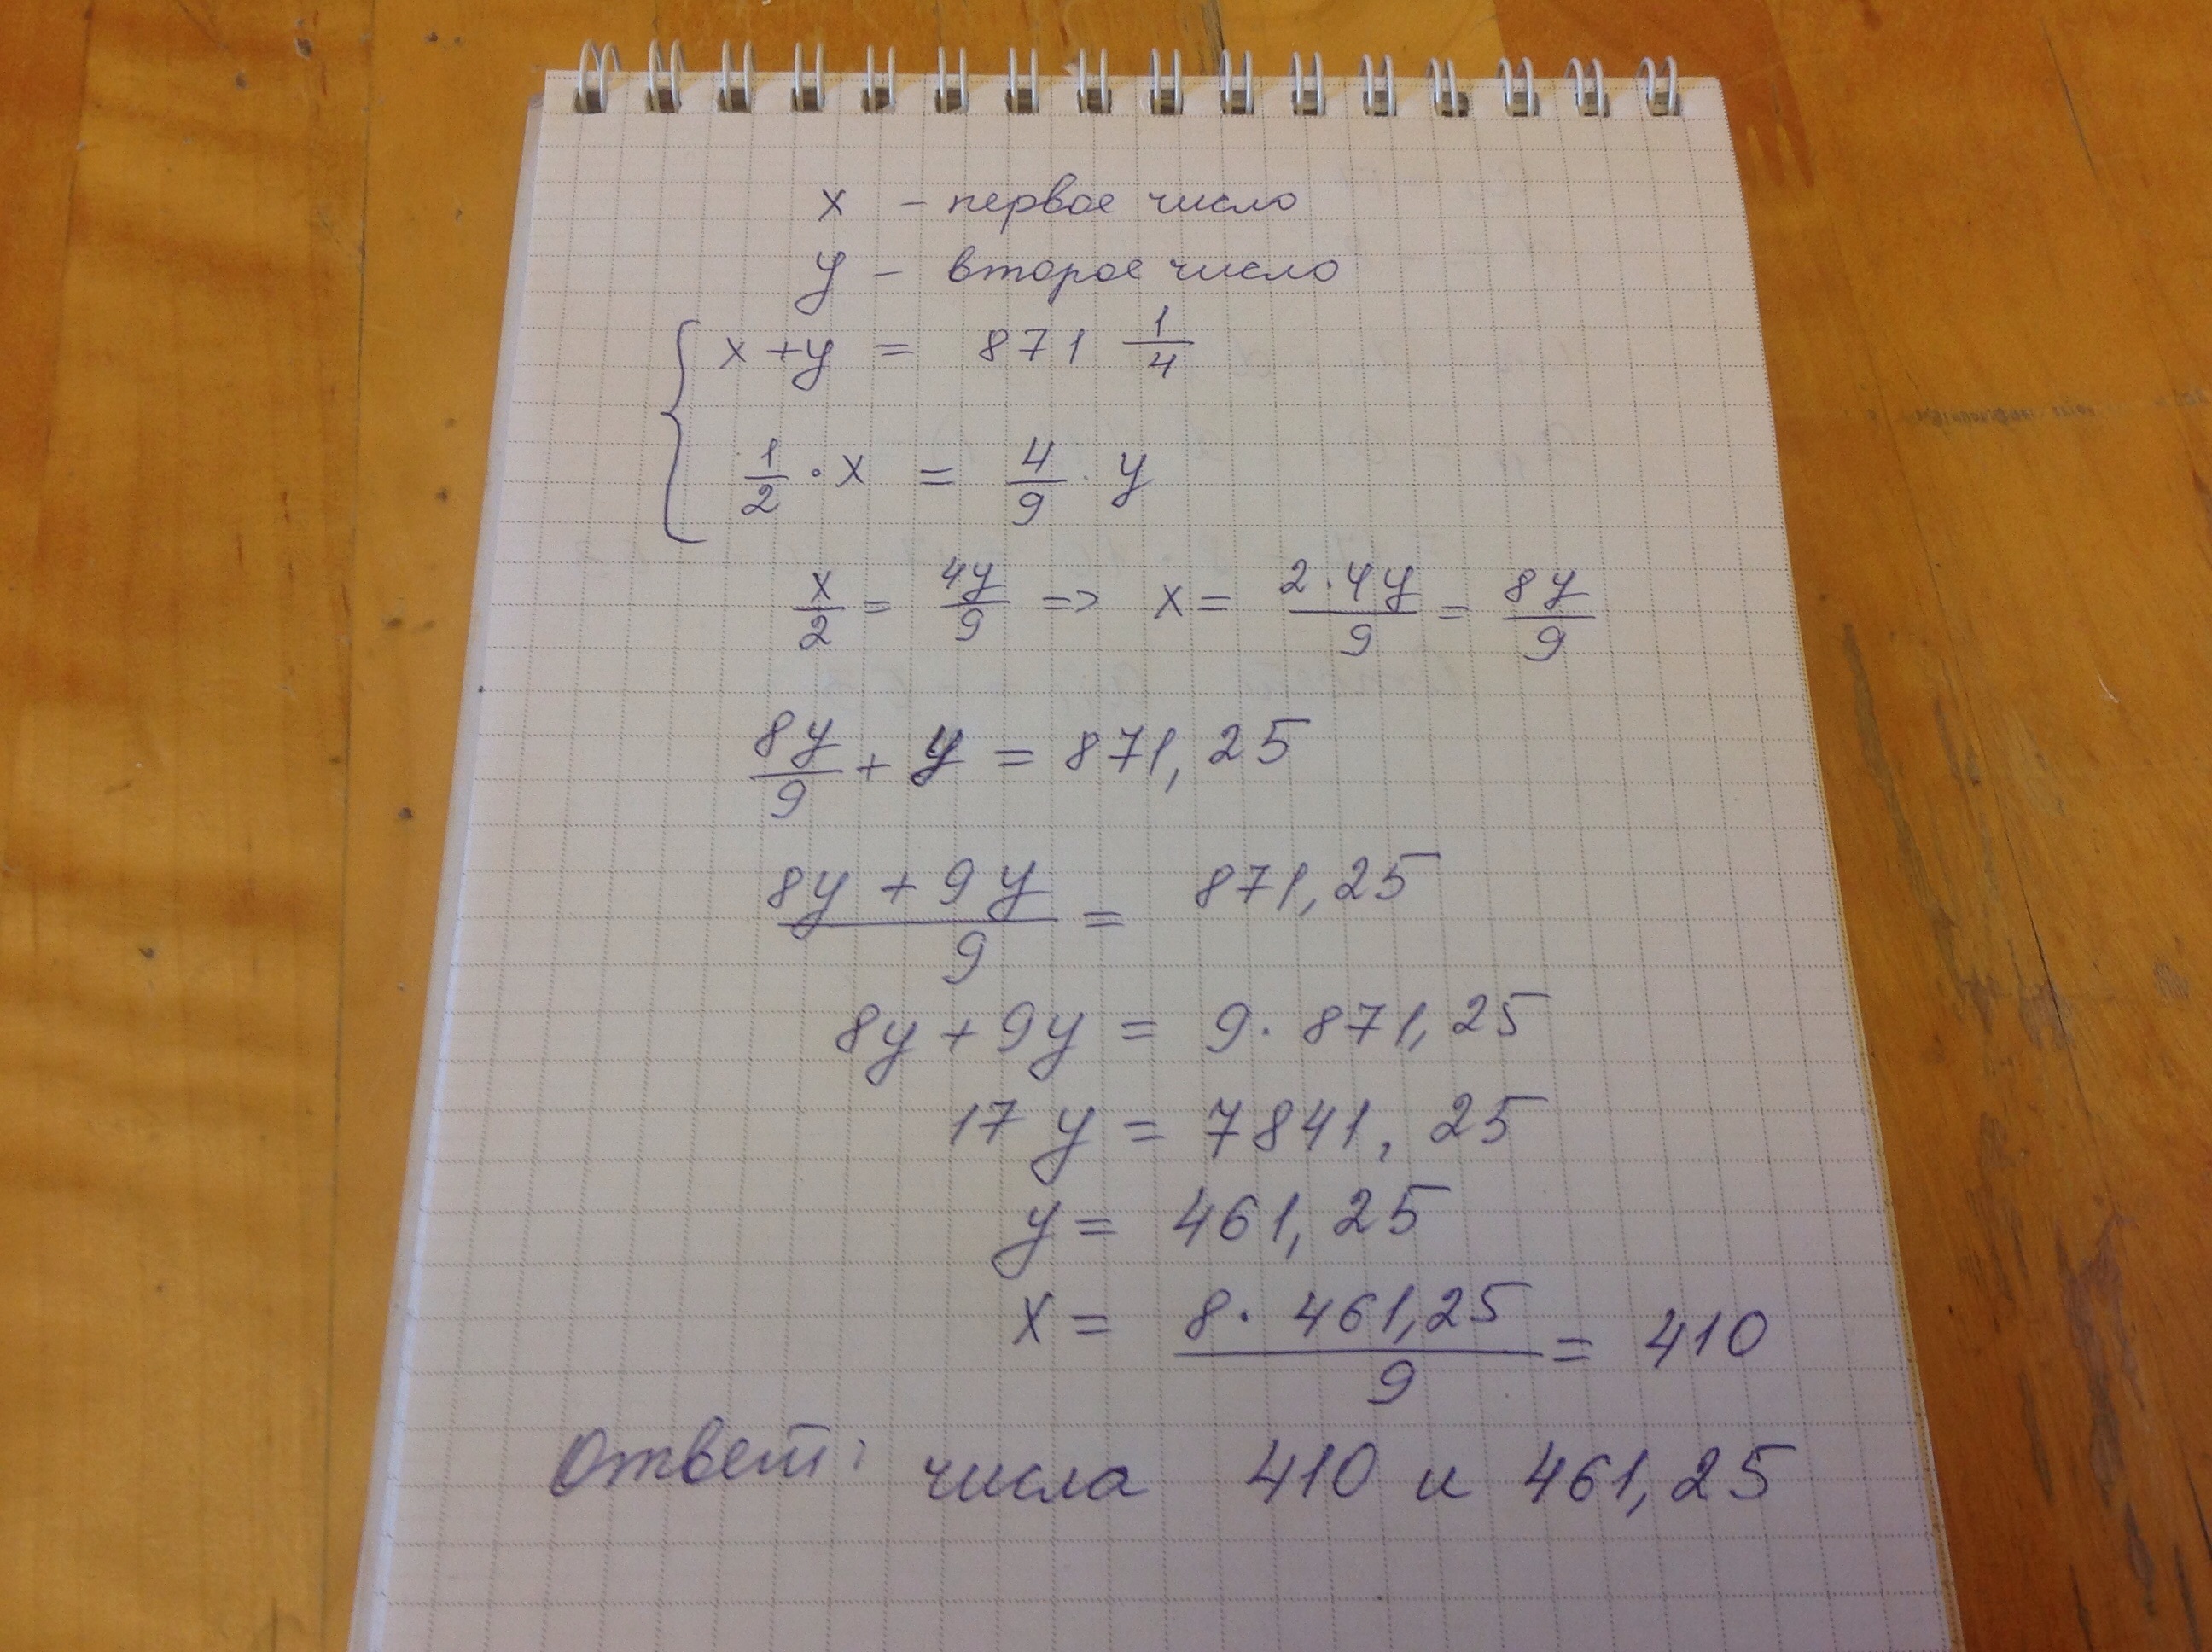 x - первое число
y - второе число
x + y = 871 1/4
1/2 · x = 4/9 · y
x/2 = 4y/9 => x = 2·4y/9 = 8y/9
8y/9 + y = 871,25
8y + 9y/9 = 871,25
8y + 9y = 9 · 871,25
17 y = 7841,25
y = 461,25
x = 8 · 461,25/9 = 410
Ответ: числа 410 и 461,25